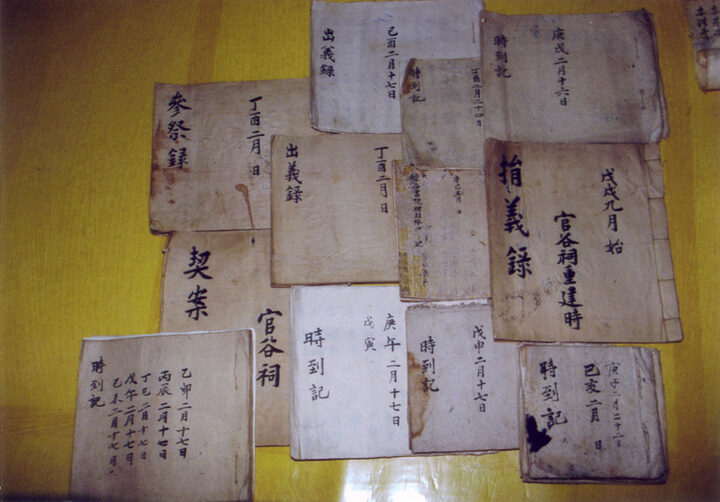 庚戌二月十六日
時到記
己酉二月十七日
出義錄
丁酉二月二十四日
時到記
丁酉二月 日
參祭錄
丁酉二月 日
出義錄
戊戌九月 始
官谷祠重建時
捐義錄
官谷祠
契案
庚午二月十七日
戊寅
時到記
戊申二月十七日
時到記
己亥二月 日
時到記
乙卯二月十七日
丙辰二月十七日
丁巳二月十七日
戊午二月十七日
己未二月十七日
時到記